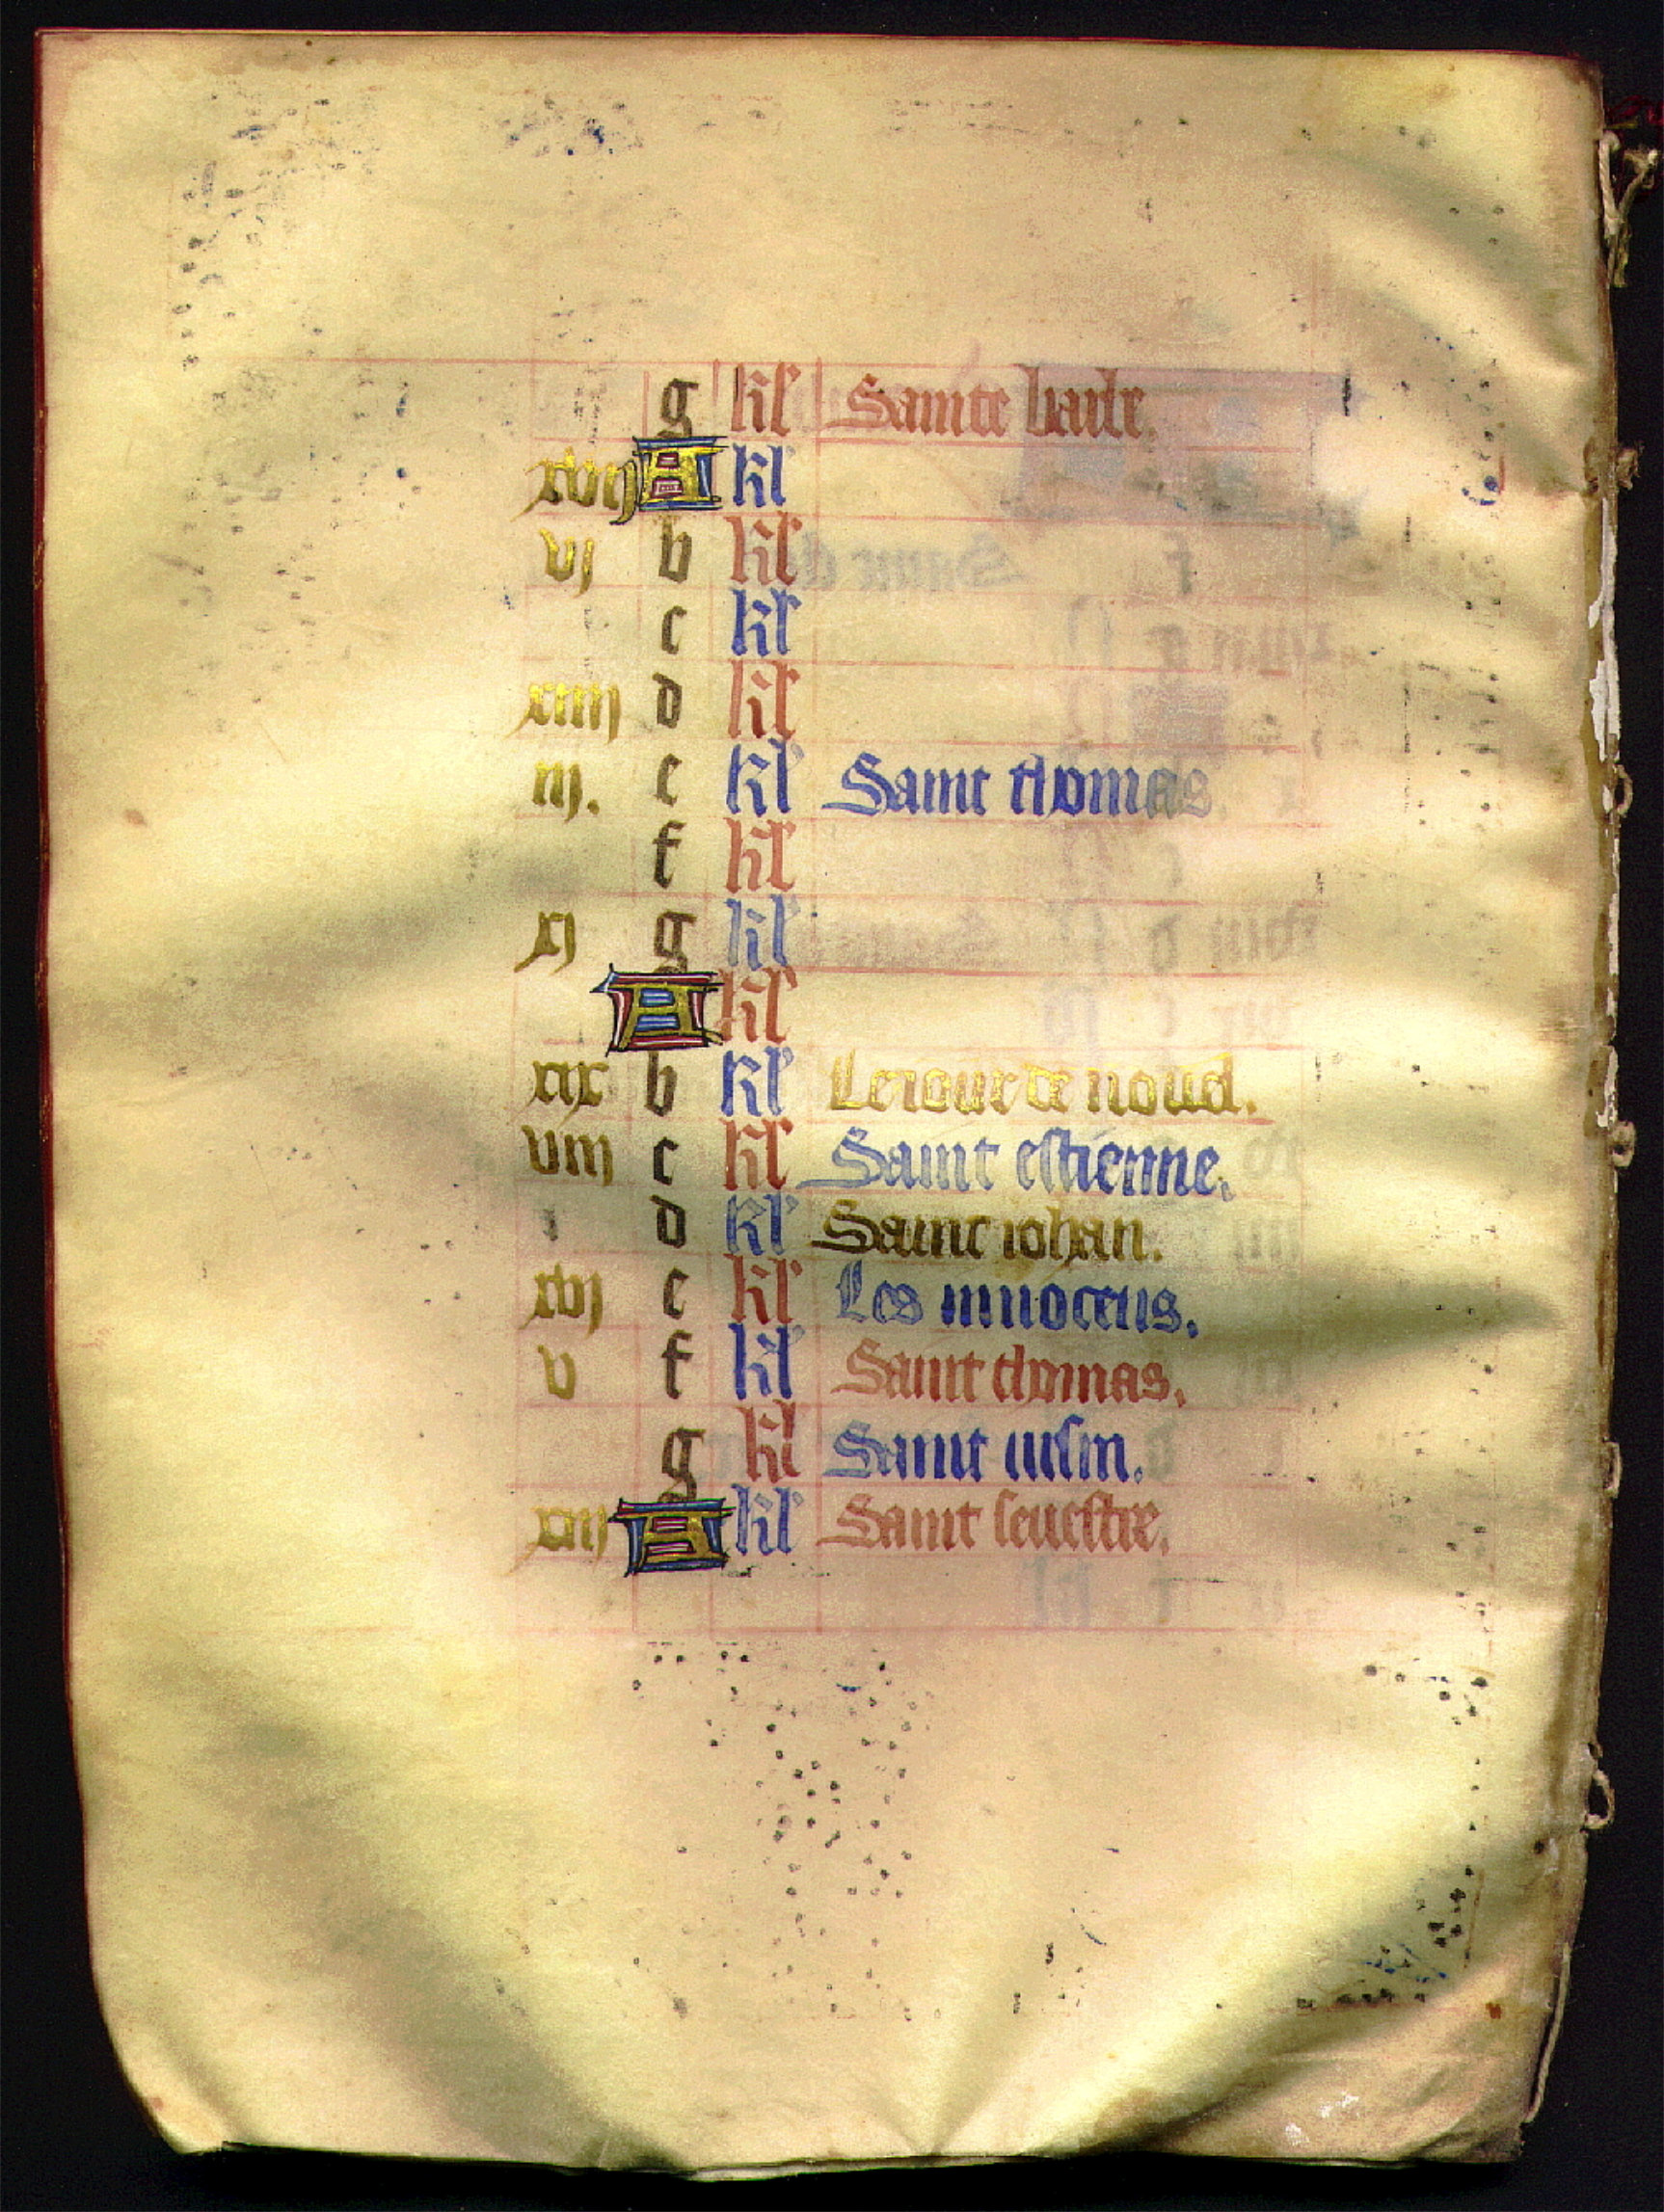 g kl Sainte
xvij A kl
vj b kl
c kl
xiiij d kl
iij. e kl Saint thomas.
f kl
xj g kl
A kl
xix b kl Le iour de nouel.
viij c kl Saint estienne.
d kl Saint iohan.
xvj e kl Les innocens.
v f kl Saint thomas.
g kl Saint
xiij A kl Saint seuestre.